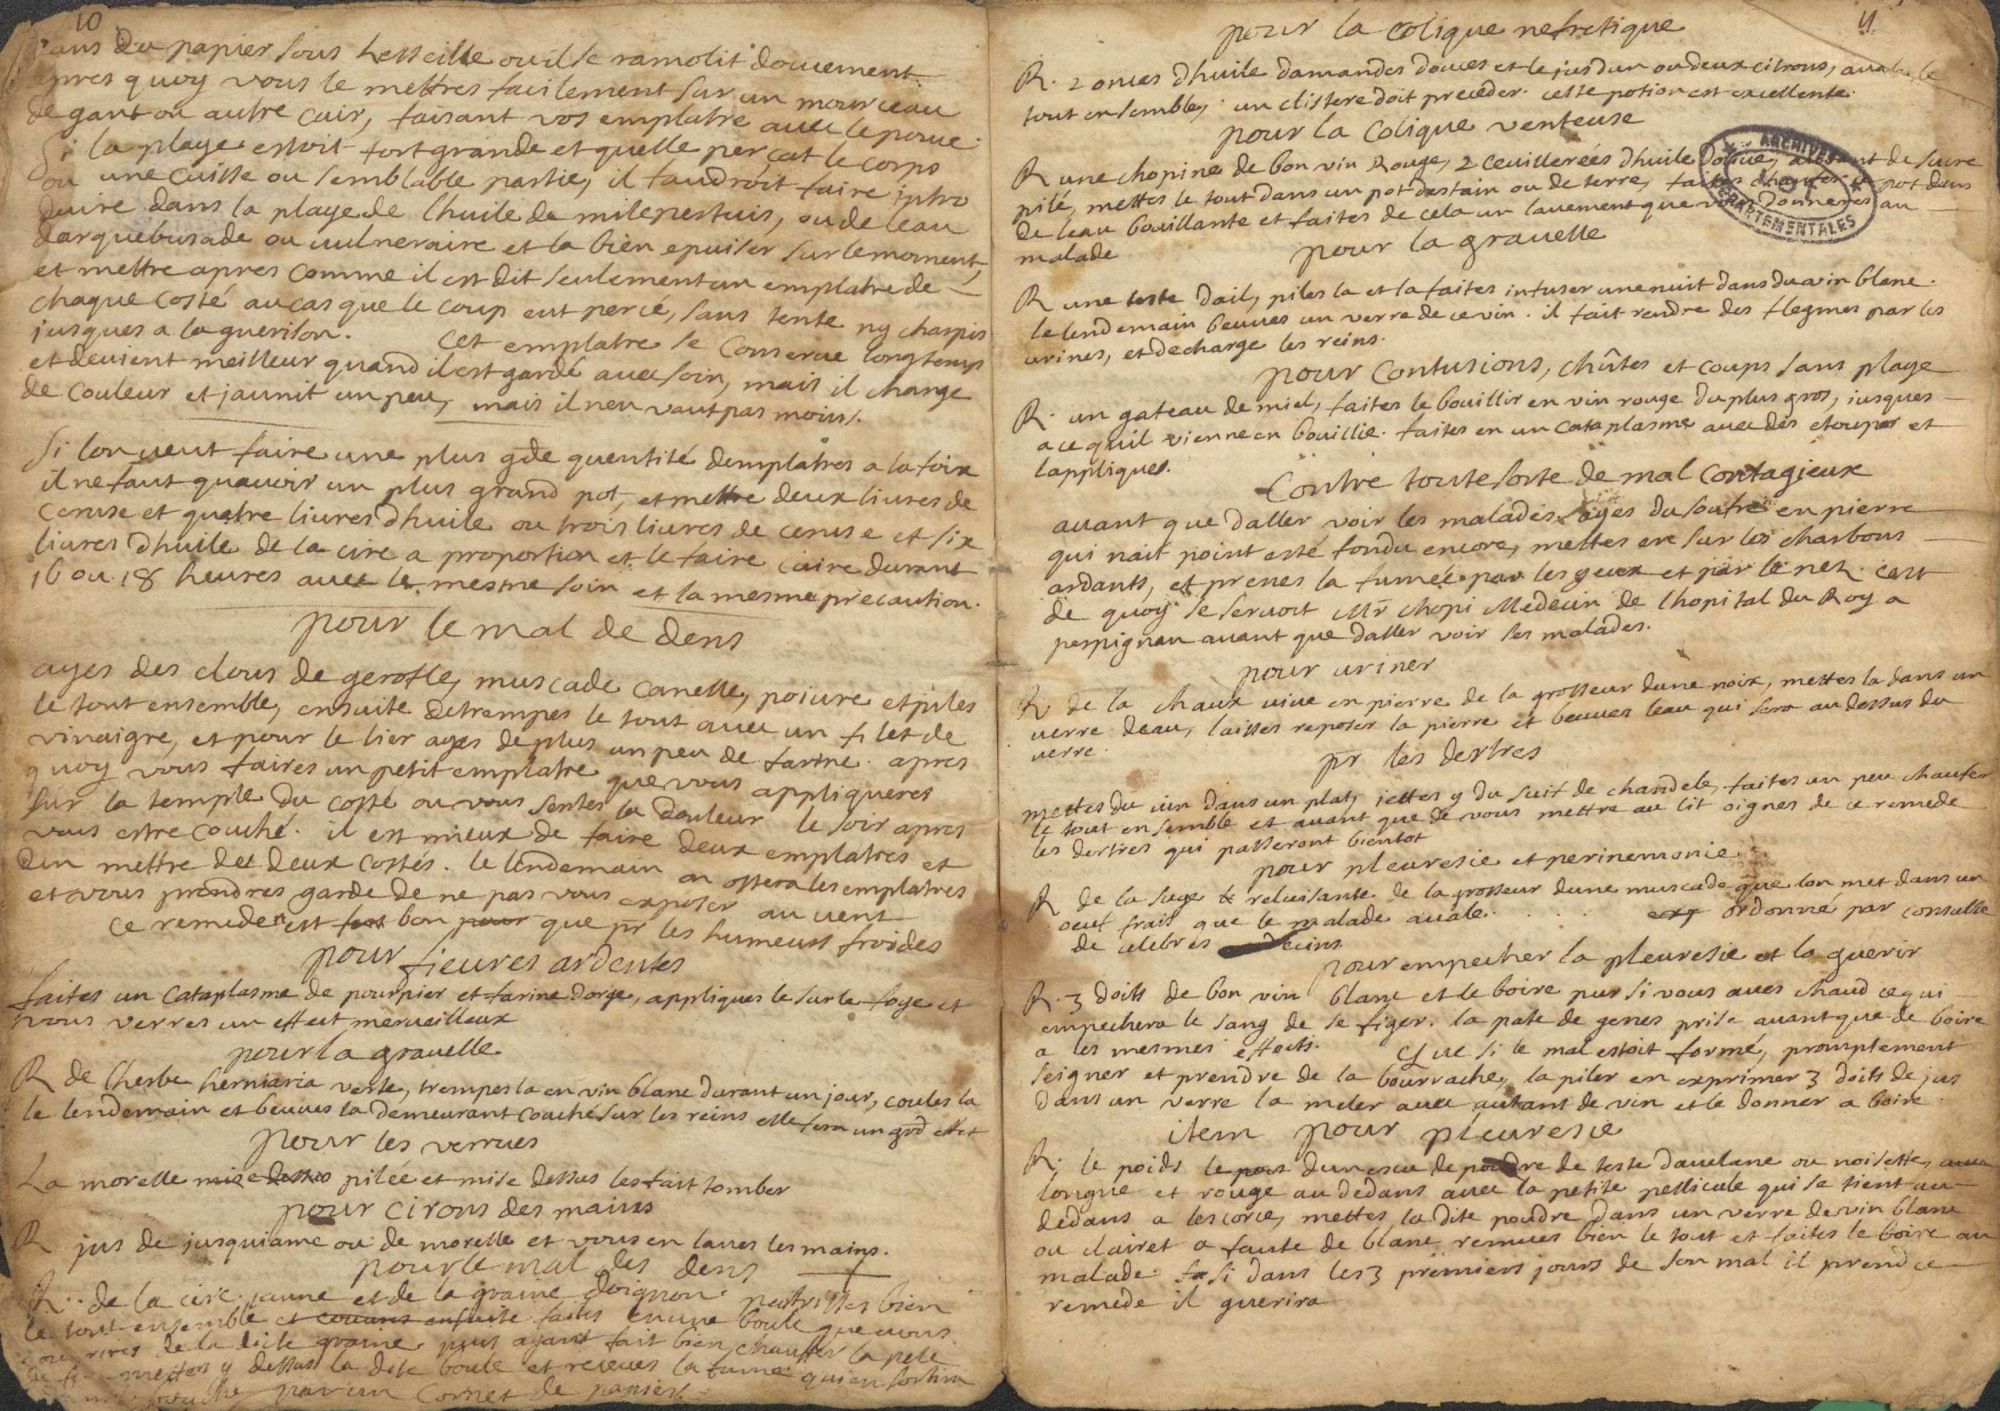 10
dans du papier sous lesseille ou il se ramolit doucement
apres quoy vous le mettres facilement sur un mourceau
de gant ou autre cuir, faisant vos emplatre avec le pouce.
Si la playe estoit fort grande et quelle perçat le corps
ou une cuisse ou semblable partie, il faudroit faire intro
duire dans la playe de lhuile de milepertuis, ou de leau
darquebusade ou vulneraire et la bien epuiser sur le moment,
et mettre apres comme il est dit seulement un emplatre de
chaque costé au cas que le coup eut percé, sans tente ny charpis
jusques a la guerison. Cet emplatre se conserve longtemps
et devient meilleur quand il est gardé avec soin, mais il change
de couleur et jaunit un peu, mais il nen vaut pas moins.
Si lon veut faire une plus gde quentité demplatres a la foix
il ne faut quavoir un plus grand pot, et mettre deux livres de
ceruse et quatre livres dhuile ou trois livres de ceruse et six
livres dhuile de la cire a proportion et le faire cuire durant
16 ou 18 heures avec le mesme soin et la mesme precaution.
pour le mal de dens
ayes des clous de gerofle, muscade canelle, poivre et piles
le tout ensemble, ensuite detrempes le tout avec un filet de
vinaigre, et pour le lier ayes de plus un peu de farine. apres
quoy vous faires un petit emplatre que vous appliqueres
sur la temple du costé ou vous sentes la douleur le soir apres
vous estre couché. il est mieux de faire deux emplatres et
den mettre des deux costés. le lendemain on ostera les emplatres
et vous prendres garde de ne pas vous exposer au vent
ce remede nest fort bon pour que pr les humeurs froides
pour fievres ardentes
faites un cataplasme de pourpier et farine dorge, appliques le sur le foye et
vous verres un effect merveilleux
pour la gravelle
R de lherbe herniaria verte, trempes la en vin blanc durant un jour, coules la
le lendemain et beuves la demeurant couché sur les reins elle fera un grd effet
pour les verrues
La morelle mise dessus pilée et mise dessus les fait tomber
pour cirons des mains
R jus de jusquiame ou de morelle et vous en laves les mains.
pour le mal des dens
R. de la cire jaune et de la graine doignon pestrisses bien
le tout ensemble et couvres ensuite faites en une boule que vous
de la dicte graine, puis ayant fait bien chauffer la pele
mettes y dessus la dite boule et receves la fumée qui en sortira
par un cornet de papier
11
pour la colique nefretique
R. 2 onces dhuile damandes douces et le jus dun ou deux citrons, avales le
tout ensemble, un clistere doit preceder. cette potion est excellente.
pour la colique venteuse
R une chopine de bon vin rouge, 2 ceuillerées dhuile douce, autant de sucre
pilé, mettes le tout dans un pot destain ou de terre, faites chaufer le pot dans
de leau bouillante et faites de cela un lavement que vous donneres au
malade
ARCHIVES DÉPARTEMENTALES
pour la gravelle
R une teste dail, piles la et la faites infuser une nuit dans du vin blanc.
le lendemain beuves un verre de ce vin. il fait rendre des flegmes par les
urines, et decharge les reins.
pour contusions, chûtes et coups sans playe
R. un gateau de miel, faites le bouillir en vin rouge du plus gros, jusques
a ce quil vienne en bouillie. faites en un cataplasme avec des etoupes et
lappliques.
Contre toute sorte de mal contagieux
avant que daller voir les malades. ayes du soufre en pierre
qui nait point esté fondu encore, mettes en sur les charbons
ardants, et prenes la fumée par les yeux et par le nez. cest
de quoy se servoit Mr chopi Medecin de lhopital du Roy a
perpignan avant que daller voir ses malades.
pour uriner
R de la chaux vive en pierre de la grosseur dune noix, mettes la dans un
verre deau, laisses reposer la pierre et beuves leau qui sera au dessus du
verre.
pr les dertres
mettes du vin dans un plat, jettes y du suif de chandele, faites un peu chaufer
le tout ensemble et avant que de vous mettre au lit oignes de ce remede
les dertres qui passeront bientot
pour pleuresie et perinemonie.
R de la suye & reluisante de la grosseur dune muscade que lon met dans un
oeuf frais que le malade avale. ordonné par consulte
de celebres decins
pour empecher la pleuresie et la guerir
R. 3 doits de bon vin blanc et le boire pur si vous aves chaud ce qui
empechera le sang de se figer. la pate de genes prise avant que de boire
a les mesmes effects. Que si le mal estoit formé, promptement
seigner et prendre de la bourrache, la piler en exprimer 3 doits de jus
dans un verre la meler avec autant de vin et le donner a boire.
item pour pleuresie
R. le poids le pois dun escu de poudre de teste davelane ou noisette, avec
longue et rouge au dedans avec la petite pellicule qui se tient au
dedans a lescorce, mettes la dite poudre dans un verre de vin blanc
ou clairet a faute de blanc, remues bien le tout et faites le boire au
malade. si dans les 3 premiers jours de son mal il prend ce
remede il guerira